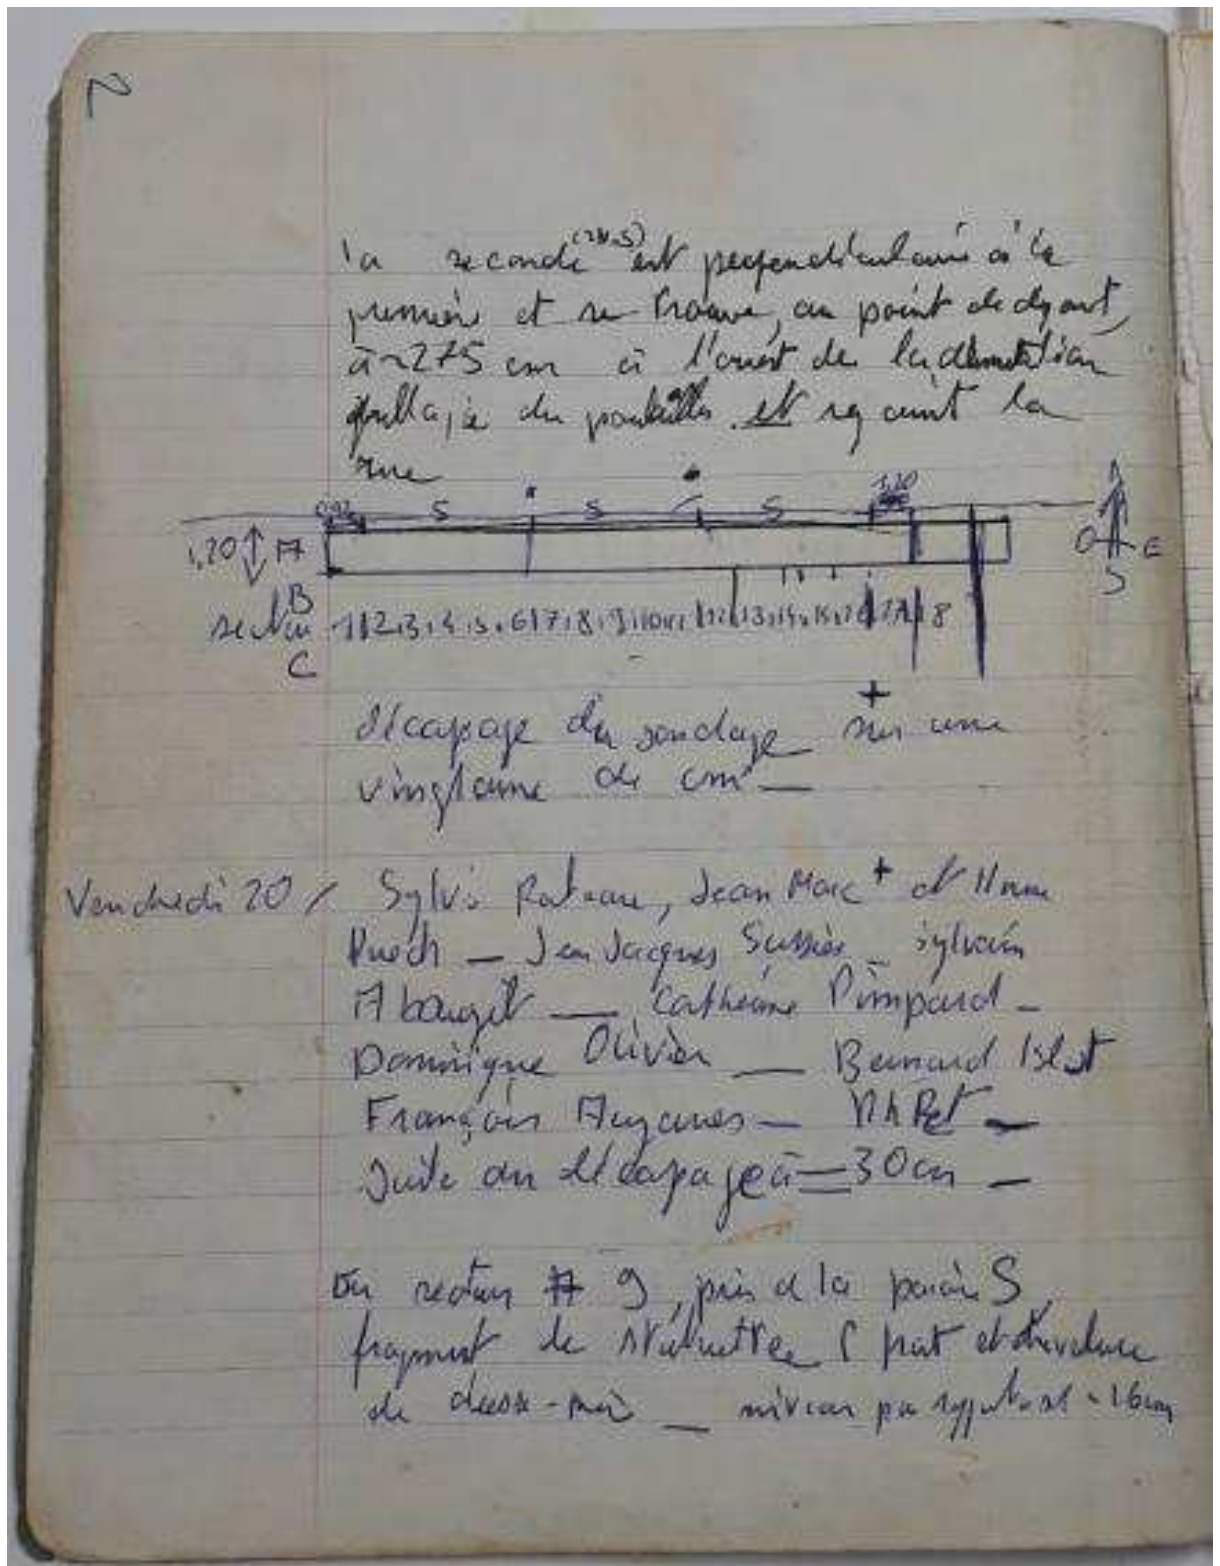 N
la seconde (N-S) est perpendiculaire à la
première et se trouve, au point de départ,
à ~275 cm à l'ouest de la
du et rejoint la
rue
5 5 5 1,20
1,20 A
O E
S
B
secteur 1 2 3 4 5 6 7 8 9 10 11 12 13 14 15 16 17 18
C
décapage du sondage + sur une
vingtaine de cm —
Vendredi 20 / Sylvie Rateau, Jean Marc + et Anne
Puech — Jean Jacques Sussies — Sylvain
Abauzit — Catherine Pimpard —
Dominique Olivier — Bernard Islat
François —
Suite du décapage à — 30 cm —
En secteur A 9, près de la paroi S,
fragment de statuette ( front et chevelure
de déesse-mère — niveau par rapport au sol - 16 cm